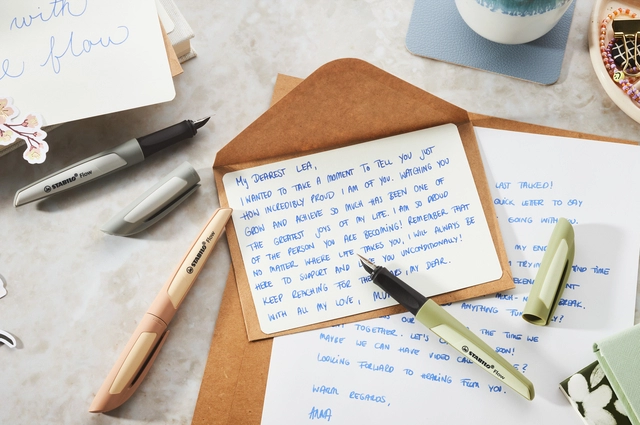 with
e flow
STABILO flow
STABILO flow
My DEAREST LEA,
I WANTED TO TAKE A MOMENT TO TELL YOU JUST
HOW INCREDIBLY PROUD I AM OF YOU. WATCHING YOU
GROW AND ACHIEVE SO MUCH HAS BEEN ONE OF
THE GREATEST JOYS OF MY LIFE. I AM SO PROUD
OF THE PERSON YOU ARE BECOMING! REMEMBER THAT
NO MATTER WHERE LIFE TAKES YOU, I WILL ALWAYS BE
HERE TO SUPPORT AND LOVE YOU UNCONDITIONALLY!
KEEP REACHING FOR THE STARS, MY DEAR.
WITH ALL MY LOVE,
LAST TALKED!
QUICK LETTER TO SAY
GOING WITH YOU.
MY
TIME
BREAK.
OUR THE TIME WE
TOGETHER. LET'S SOON!
MAYBE WE CAN HAVE VIDEO CALL
LOOKING FORWARD TO HEARING FROM YOU.
WARM REGARDS,
ANNA
STABILO flow